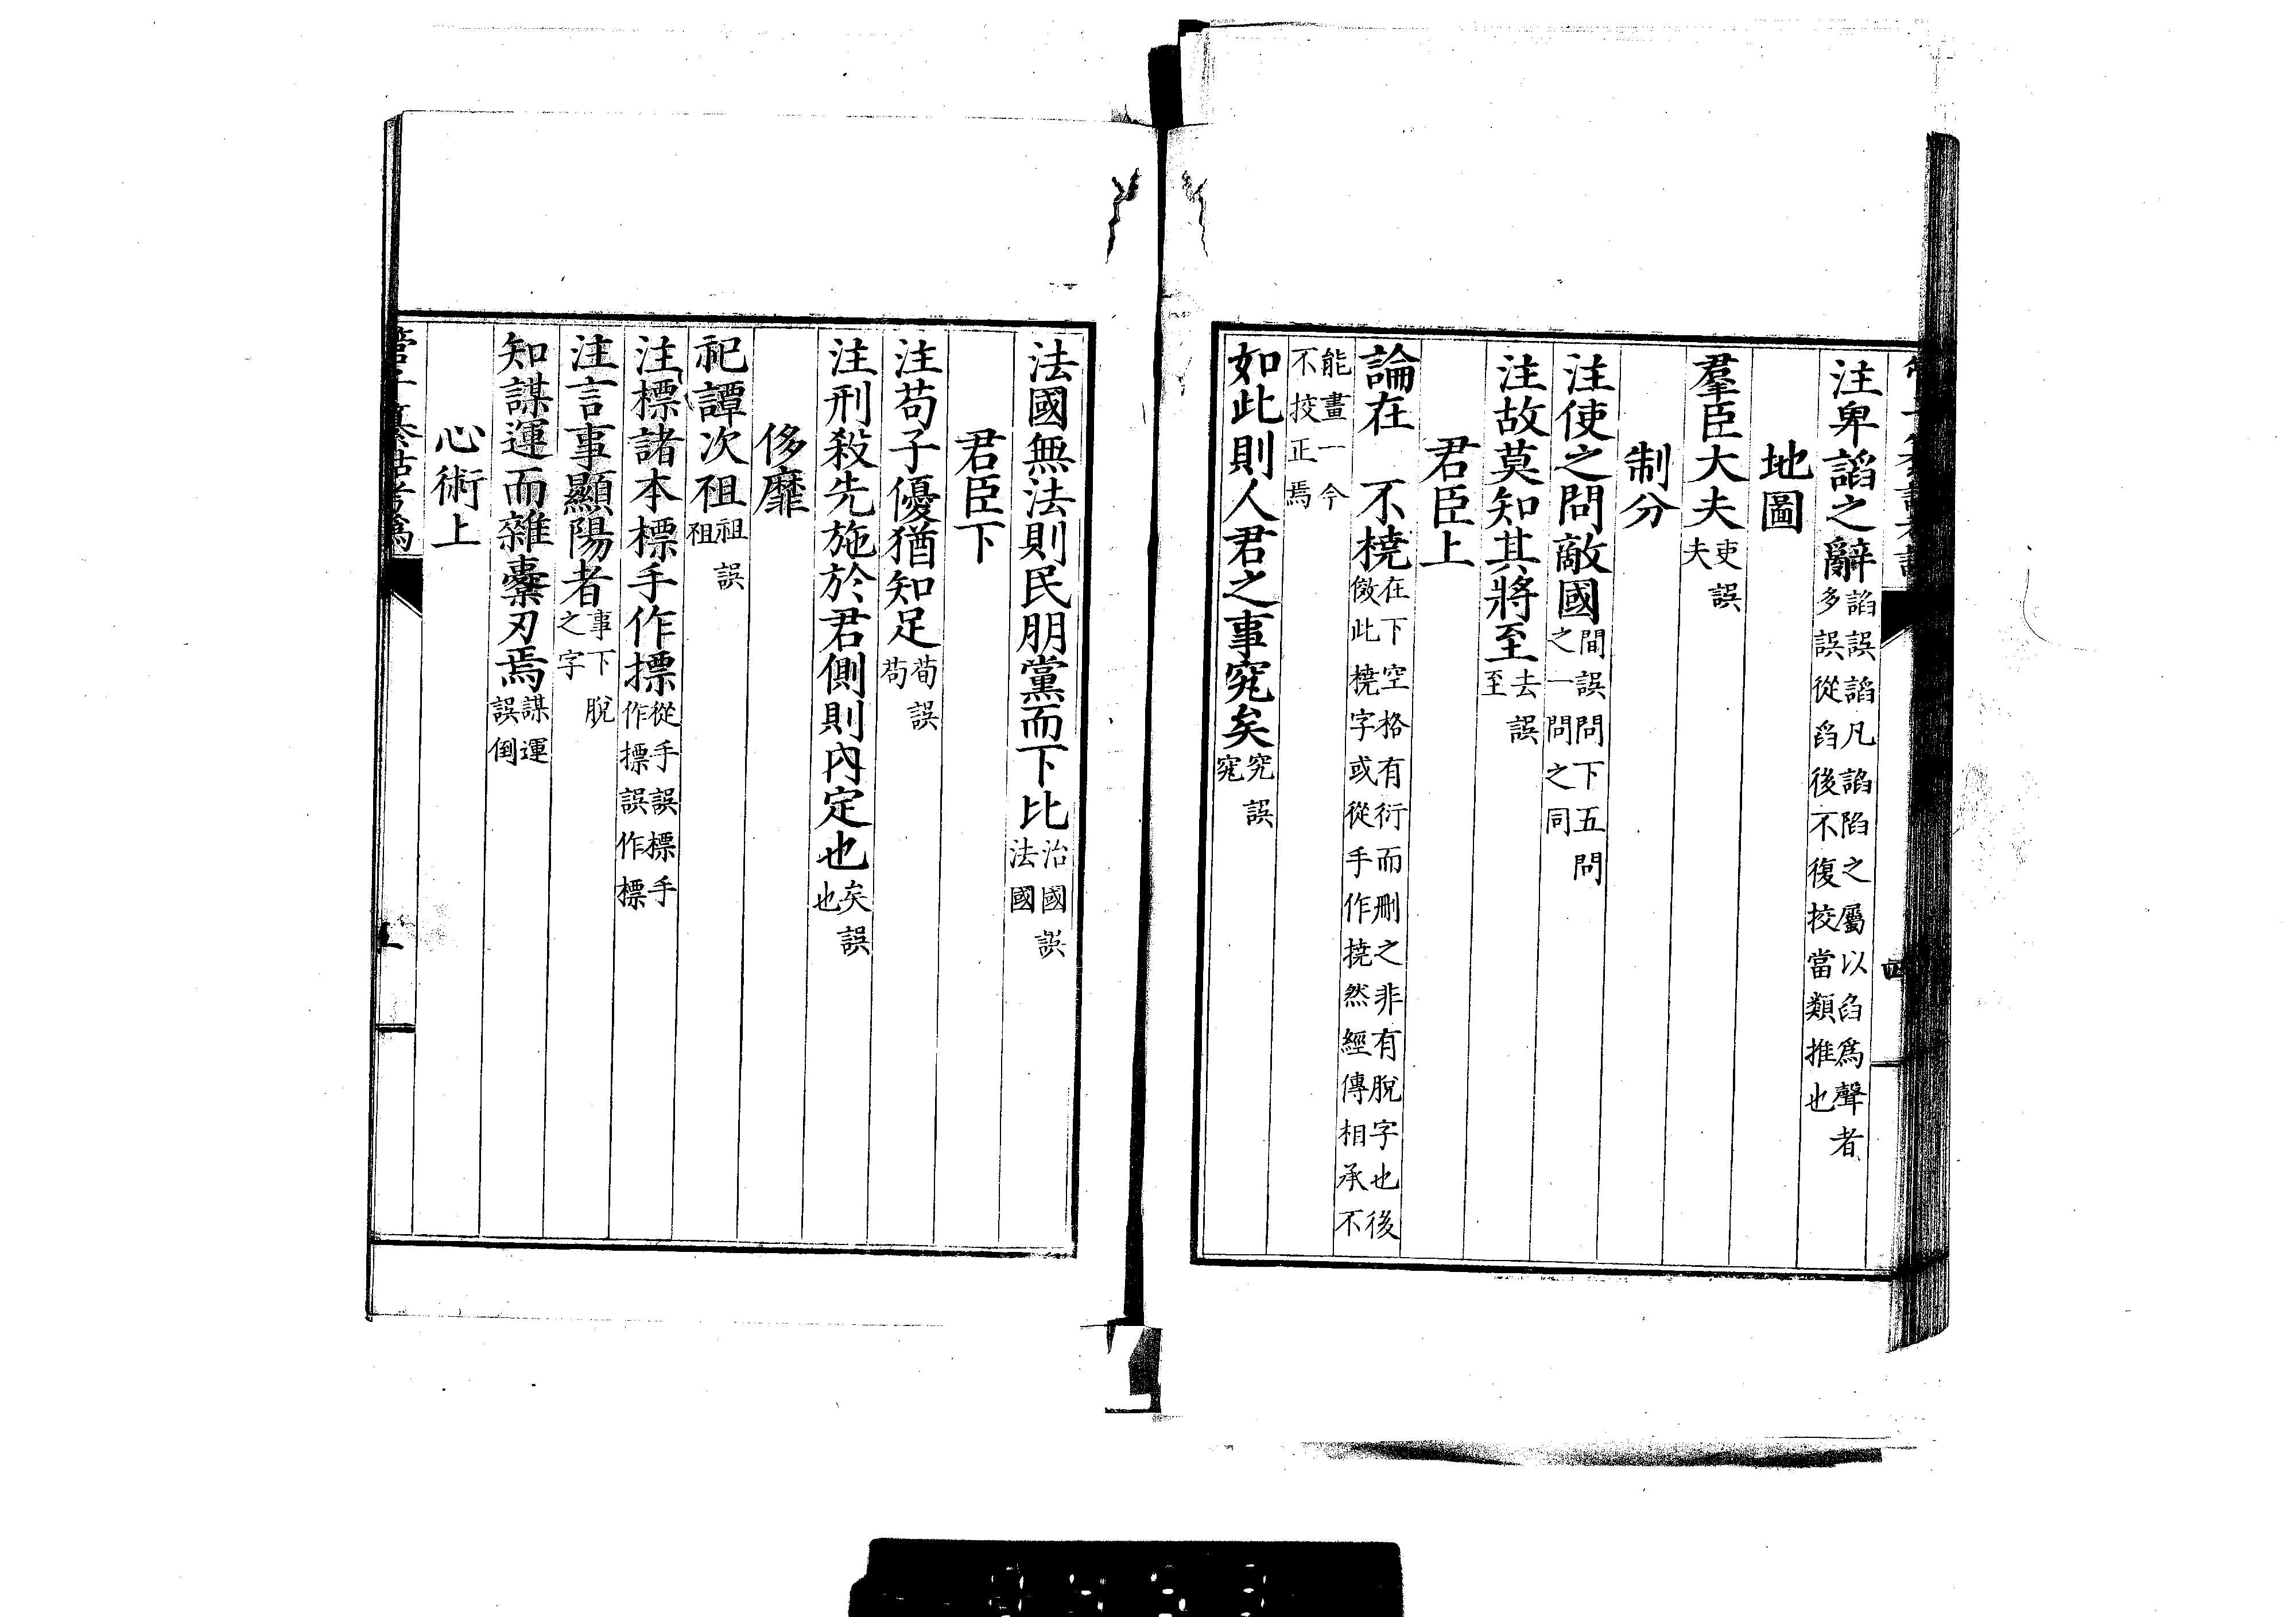 注卑謟之辭謟誤謟凡謟陷之屬以臽爲聲者
多誤從舀後不復挍當類推也
地圖
羣臣大夫吏誤
夫
制分
注使之問敵國間誤問下五問
之一問之同
注故莫知其將至去誤
至
君臣上
論在　不橈在下空格有衍而刪之非有脫字也後
儌此橈字或從手作撓然經傳相承不
能畫一今
不挍正焉
如此則人君之事究矣究誤
寃
法國無法則民朋黨而下比治國誤
法國
君臣下
注苟子優猶知足荀誤
苟
注刑殺先施於君側則內定也矣誤
也
侈靡
祀譚次祖祖誤
祖
注標諸本標手作摽從手誤標手
作摽誤作標
注言事顯陽者事下脫
之字
知謀運而雜橐刃焉謀運
誤倒
心術上
五
四